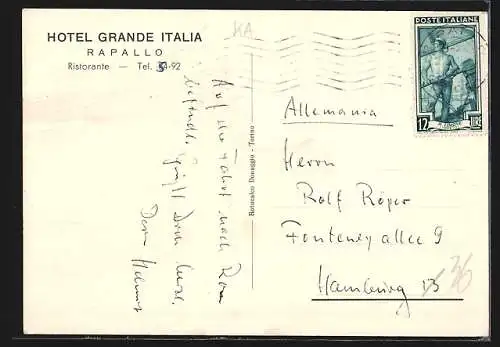 HOTEL GRANDE ITALIA
RAPALLO
Ristorante — Tel. 54-92
KA
POSTE ITALIANE
12 LIRE
Auf der Fahrt nach Rom
grüßt Dich
Dein Helmut
Rotocalco Dovaggio - Torino
Allemania
Herrn
Rolf Röper
Fontenay allee 9
Hamburg 13
36